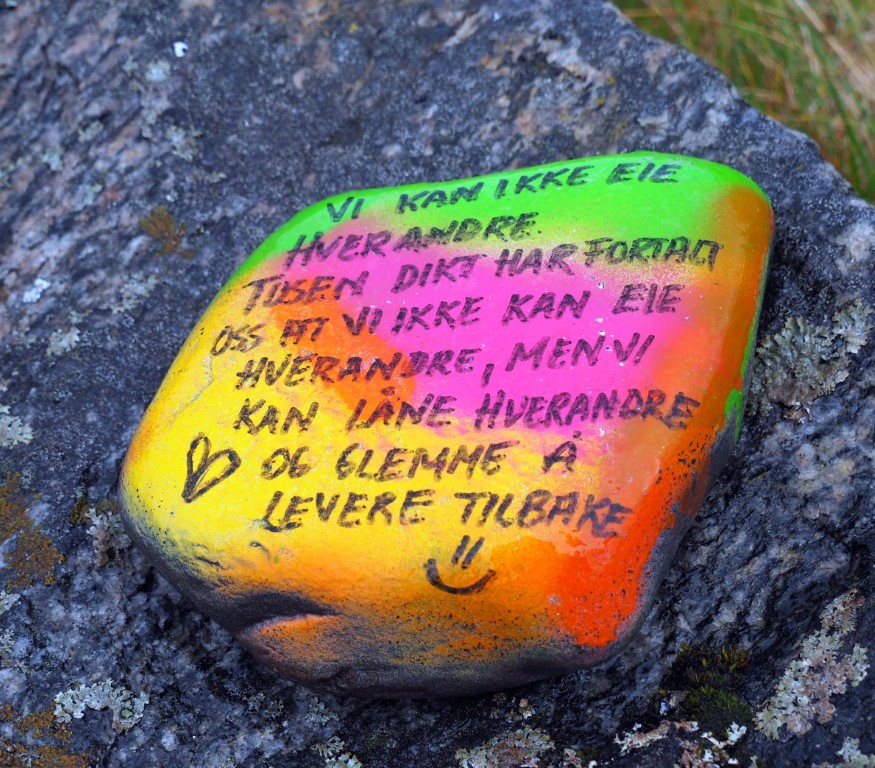 VI KAN IKKE EIE
HVERANDRE.
TUSEN DIKT HAR FORTALT
OSS AT VI IKKE KAN EIE
HVERANDRE, MEN VI
KAN LÅNE HVERANDRE
OG GLEMME Å
LEVERE TILBAKE